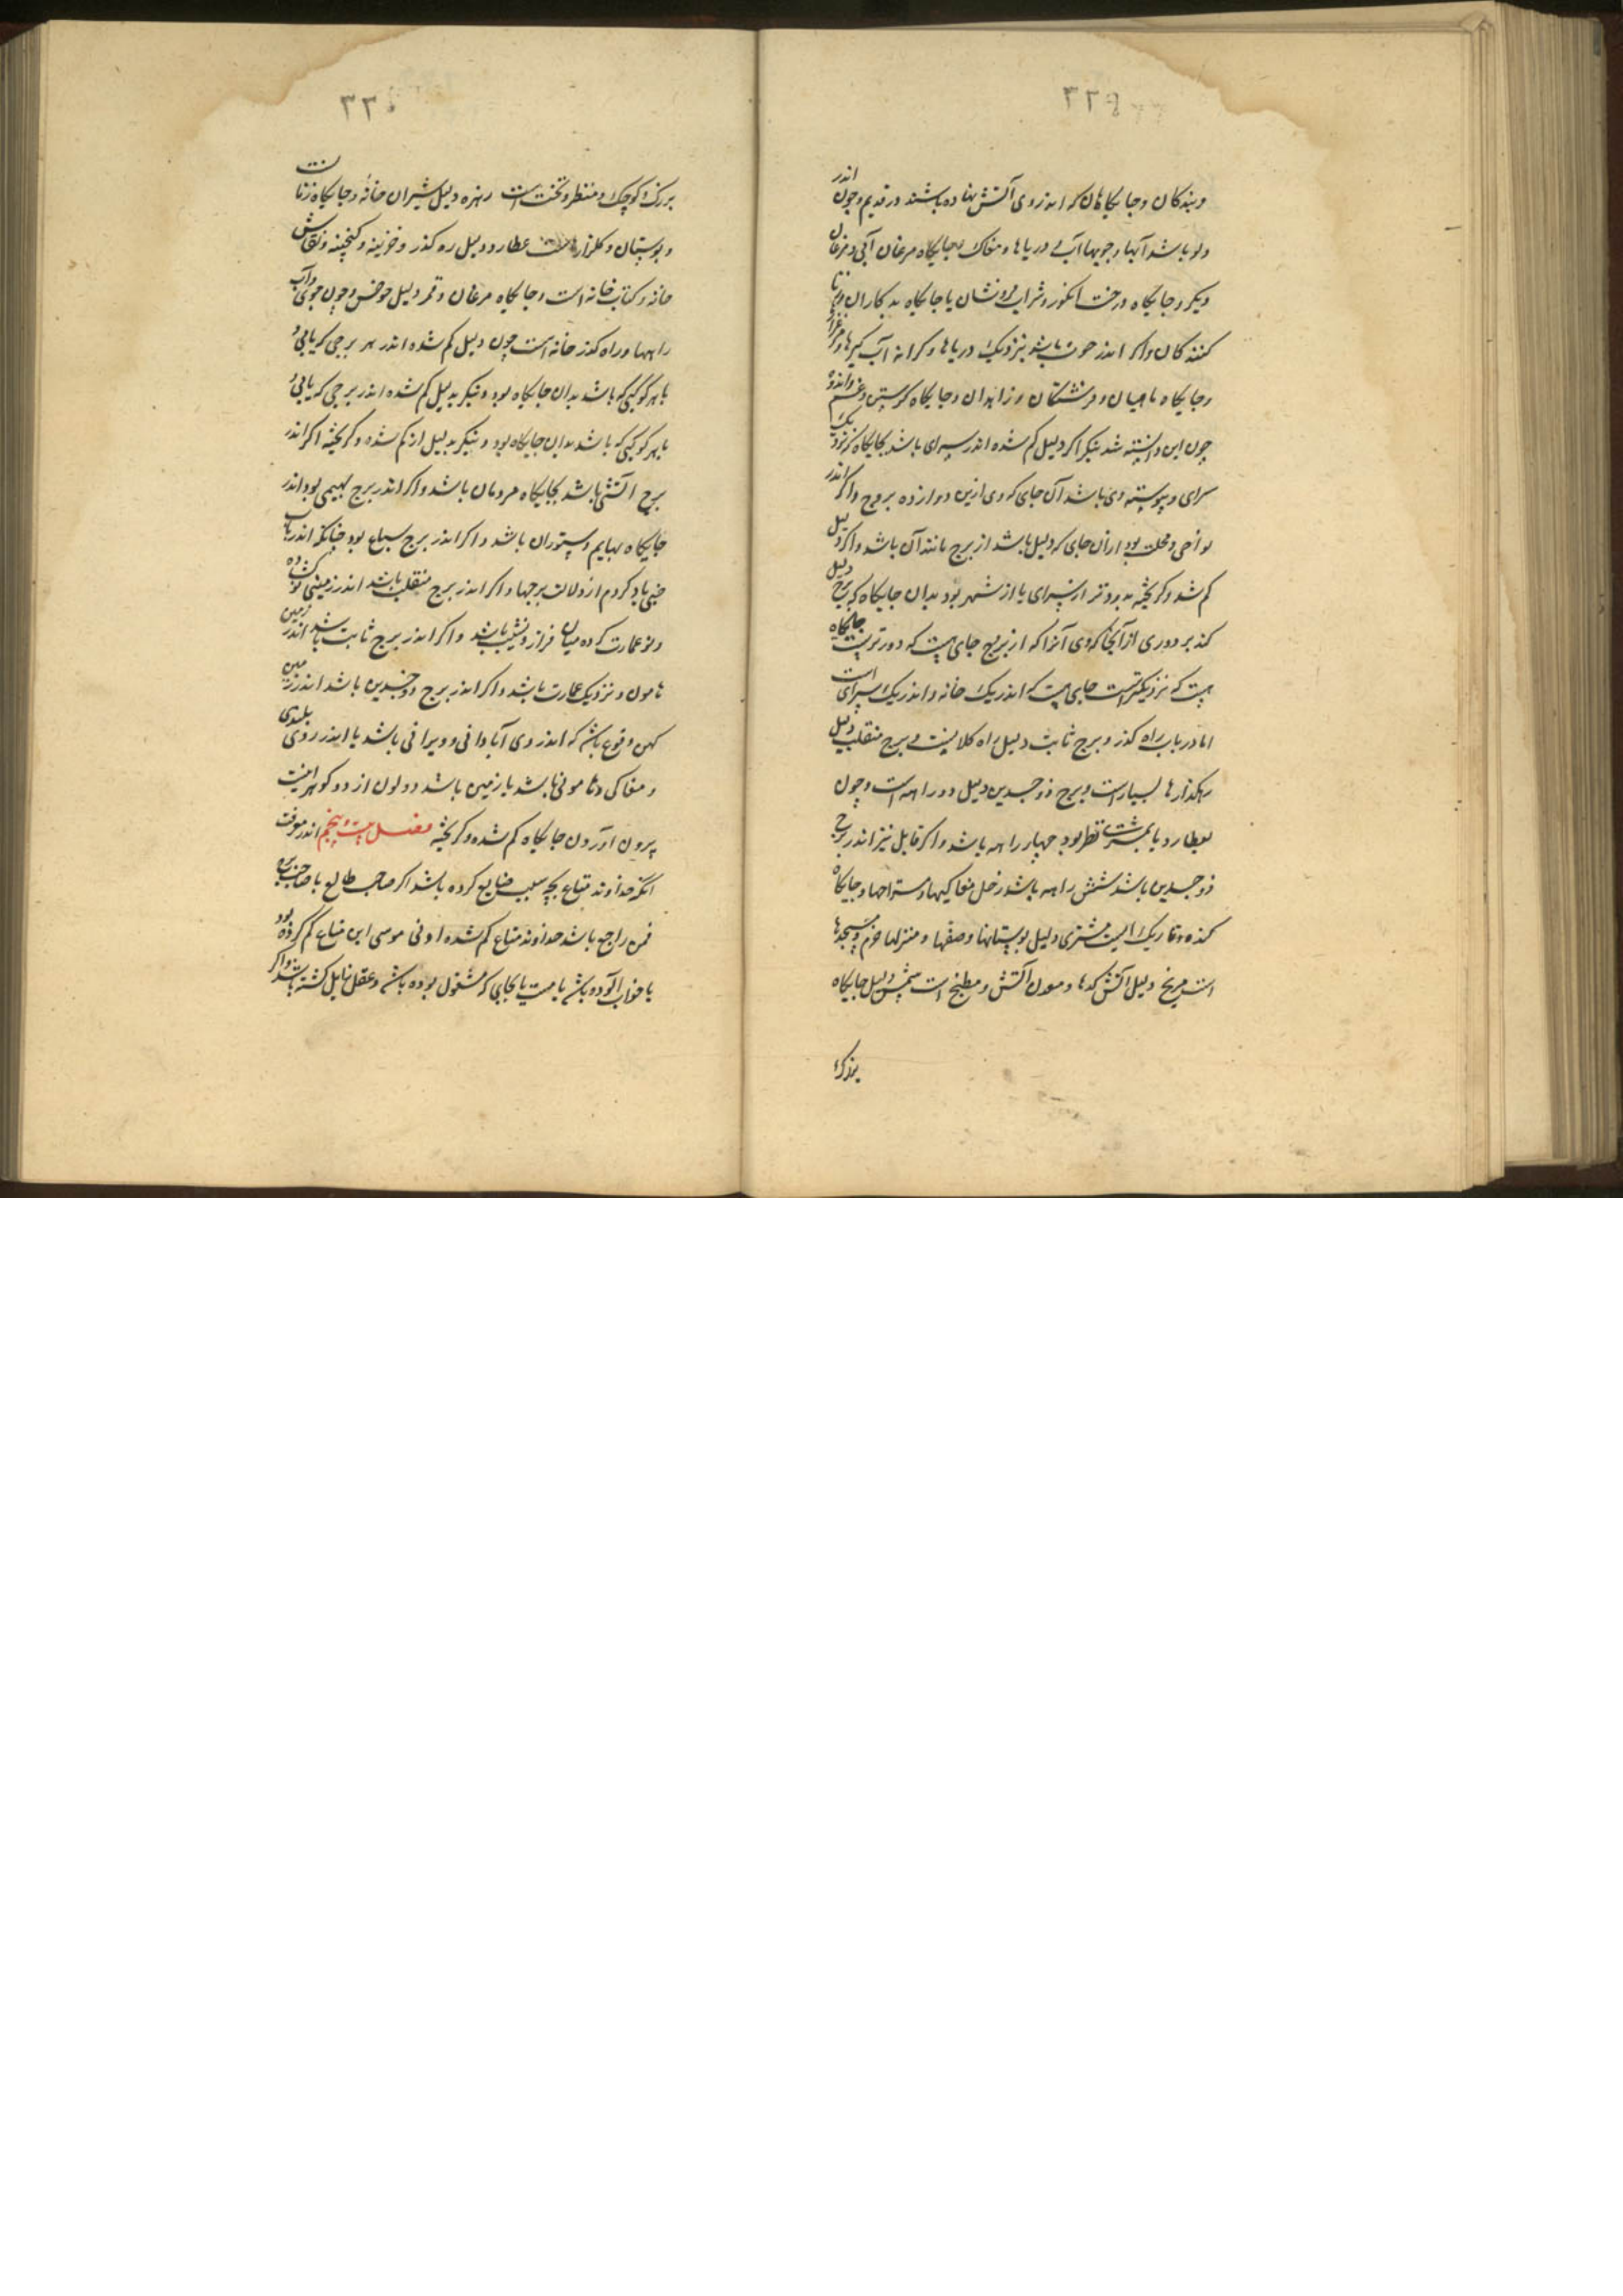 ۲۲۹
وبندکان وجایکاهان که اندروی آتش نهاده باشند در قدیم وچون اندر
دلو باشد آبها وجویها آب دریاها ومغاک وجایکاه مرغان آبی ومرغان
دیکر وجایکاه درخت انکور وشراب فروشان یا جایکاه بدکاران وزنا
کنندکان واکر اندر حوت باشد بنزدیک دریاها وکرانه آب کیرها ومرغزار
وجایکاه ماهیان وفرشتکان وزاهدان وجایکاه کریستن وغم واندوه
چون این دانسته شد بنکر اکر دلیل کم شده اندر سرای باشد بجایکاه نزدیک
سرای وپیوسته وی باشد آن جای که وی ازین دوازده بروج واکر اندر
نواحی ومحلت بود ازان جای که دلیل باشد از برج مانند آن باشد واکر دلیل
کم شده وکریخته بدورتر از سرای یا از شهر بود بدان جایکاه که برج دلیل
کند بر دوری از آنجا که وی آنرا که از برج جای هست که دورترست جایکاه
هست که نزدیکترست جای هست که اندر یک خانه واندر یک سرای است
اما در باب راه کذر وبرج ثابت دلیل راه کلانیست وبرج منقلب دلیل
رهکذارها بسیارست وبرج ذو جسدین دلیل دو راهه است وچون
بعطارد یا بمشتری نظر بود چهار راهه باشد واکر قابل نیز اندر برج
ذو جسدین باشد شش راهه باشد زحل مغاکیها ومستراحها وجایکاه
کنده وتاریک است مشتری دلیل بوستانها وصفها ومنزلها خرم ومسجدها
است مریخ دلیل آتش کدها ومعدن آتش ومطبخ است شمس دلیل جایکاه
بزرک
۲۳۰
بزرک وکوچک ومنظر وتخت است زهره دلیل شیران خانه وجایکاه زنانست
وبوستان وکلزار است عطارد دلیل ره کذر وخزینه وکنجینه ونقاش
خانه وکتاب خانه است وجایکاه مرغان وقمر دلیل حوض وچون جوی وآب
راهها وراه کذر خانه است چون دلیل کم شده اندر هر برجی که یابی و
با هر کوکبی که باشد بدان جایکاه بود وبنکر بدلیل کم شده اندر برجی که یابی و
با هر کوکبی که باشد بدان جایکاه بود وبنکر بدلیل از کم شده وکریخته اکر اندر
برج آتشی باشد بجایکاه مردمان باشد واکر اندر برج بهیمی بود اندر
جایکاه بهایم وستوران باشد واکر اندر برج سباع بود چنانکه اندر باب
خبی یاد کردم از دلالت برجها واکر اندر برج منقلب باشد اندر زمینی نو کشاده
ونو عمارت کرده میان فراز ونشیب باشد واکر اندر برج ثابت باشد اندر زمین
هامون ونزدیک عمارت باشد واکر اندر برج ذو جسدین باشد اندر زمین
کهن وقوع باشد که اندر وی آبادانی وویرانی باشد یا اندر روی بلندی
ومغاکی وهامونی باشد یا زمین باشد دو لون از دو کوهر اینست
بیرون آوردن جایکاه کم شده وکریخته فصل بیست وپنجم اندر معرفت
آنکه خداوند متاع بچه سبب ضایع کرده باشد اکر صاحب طالع یا صاحب بیره
قمر راجع باشد خداوند متاع کم شده این متاع کم کرده بود
یا خواب آلوده باشد یا مست یا بجایی که مشغول بوده باشد وعقل زایل کشته باشد واکر